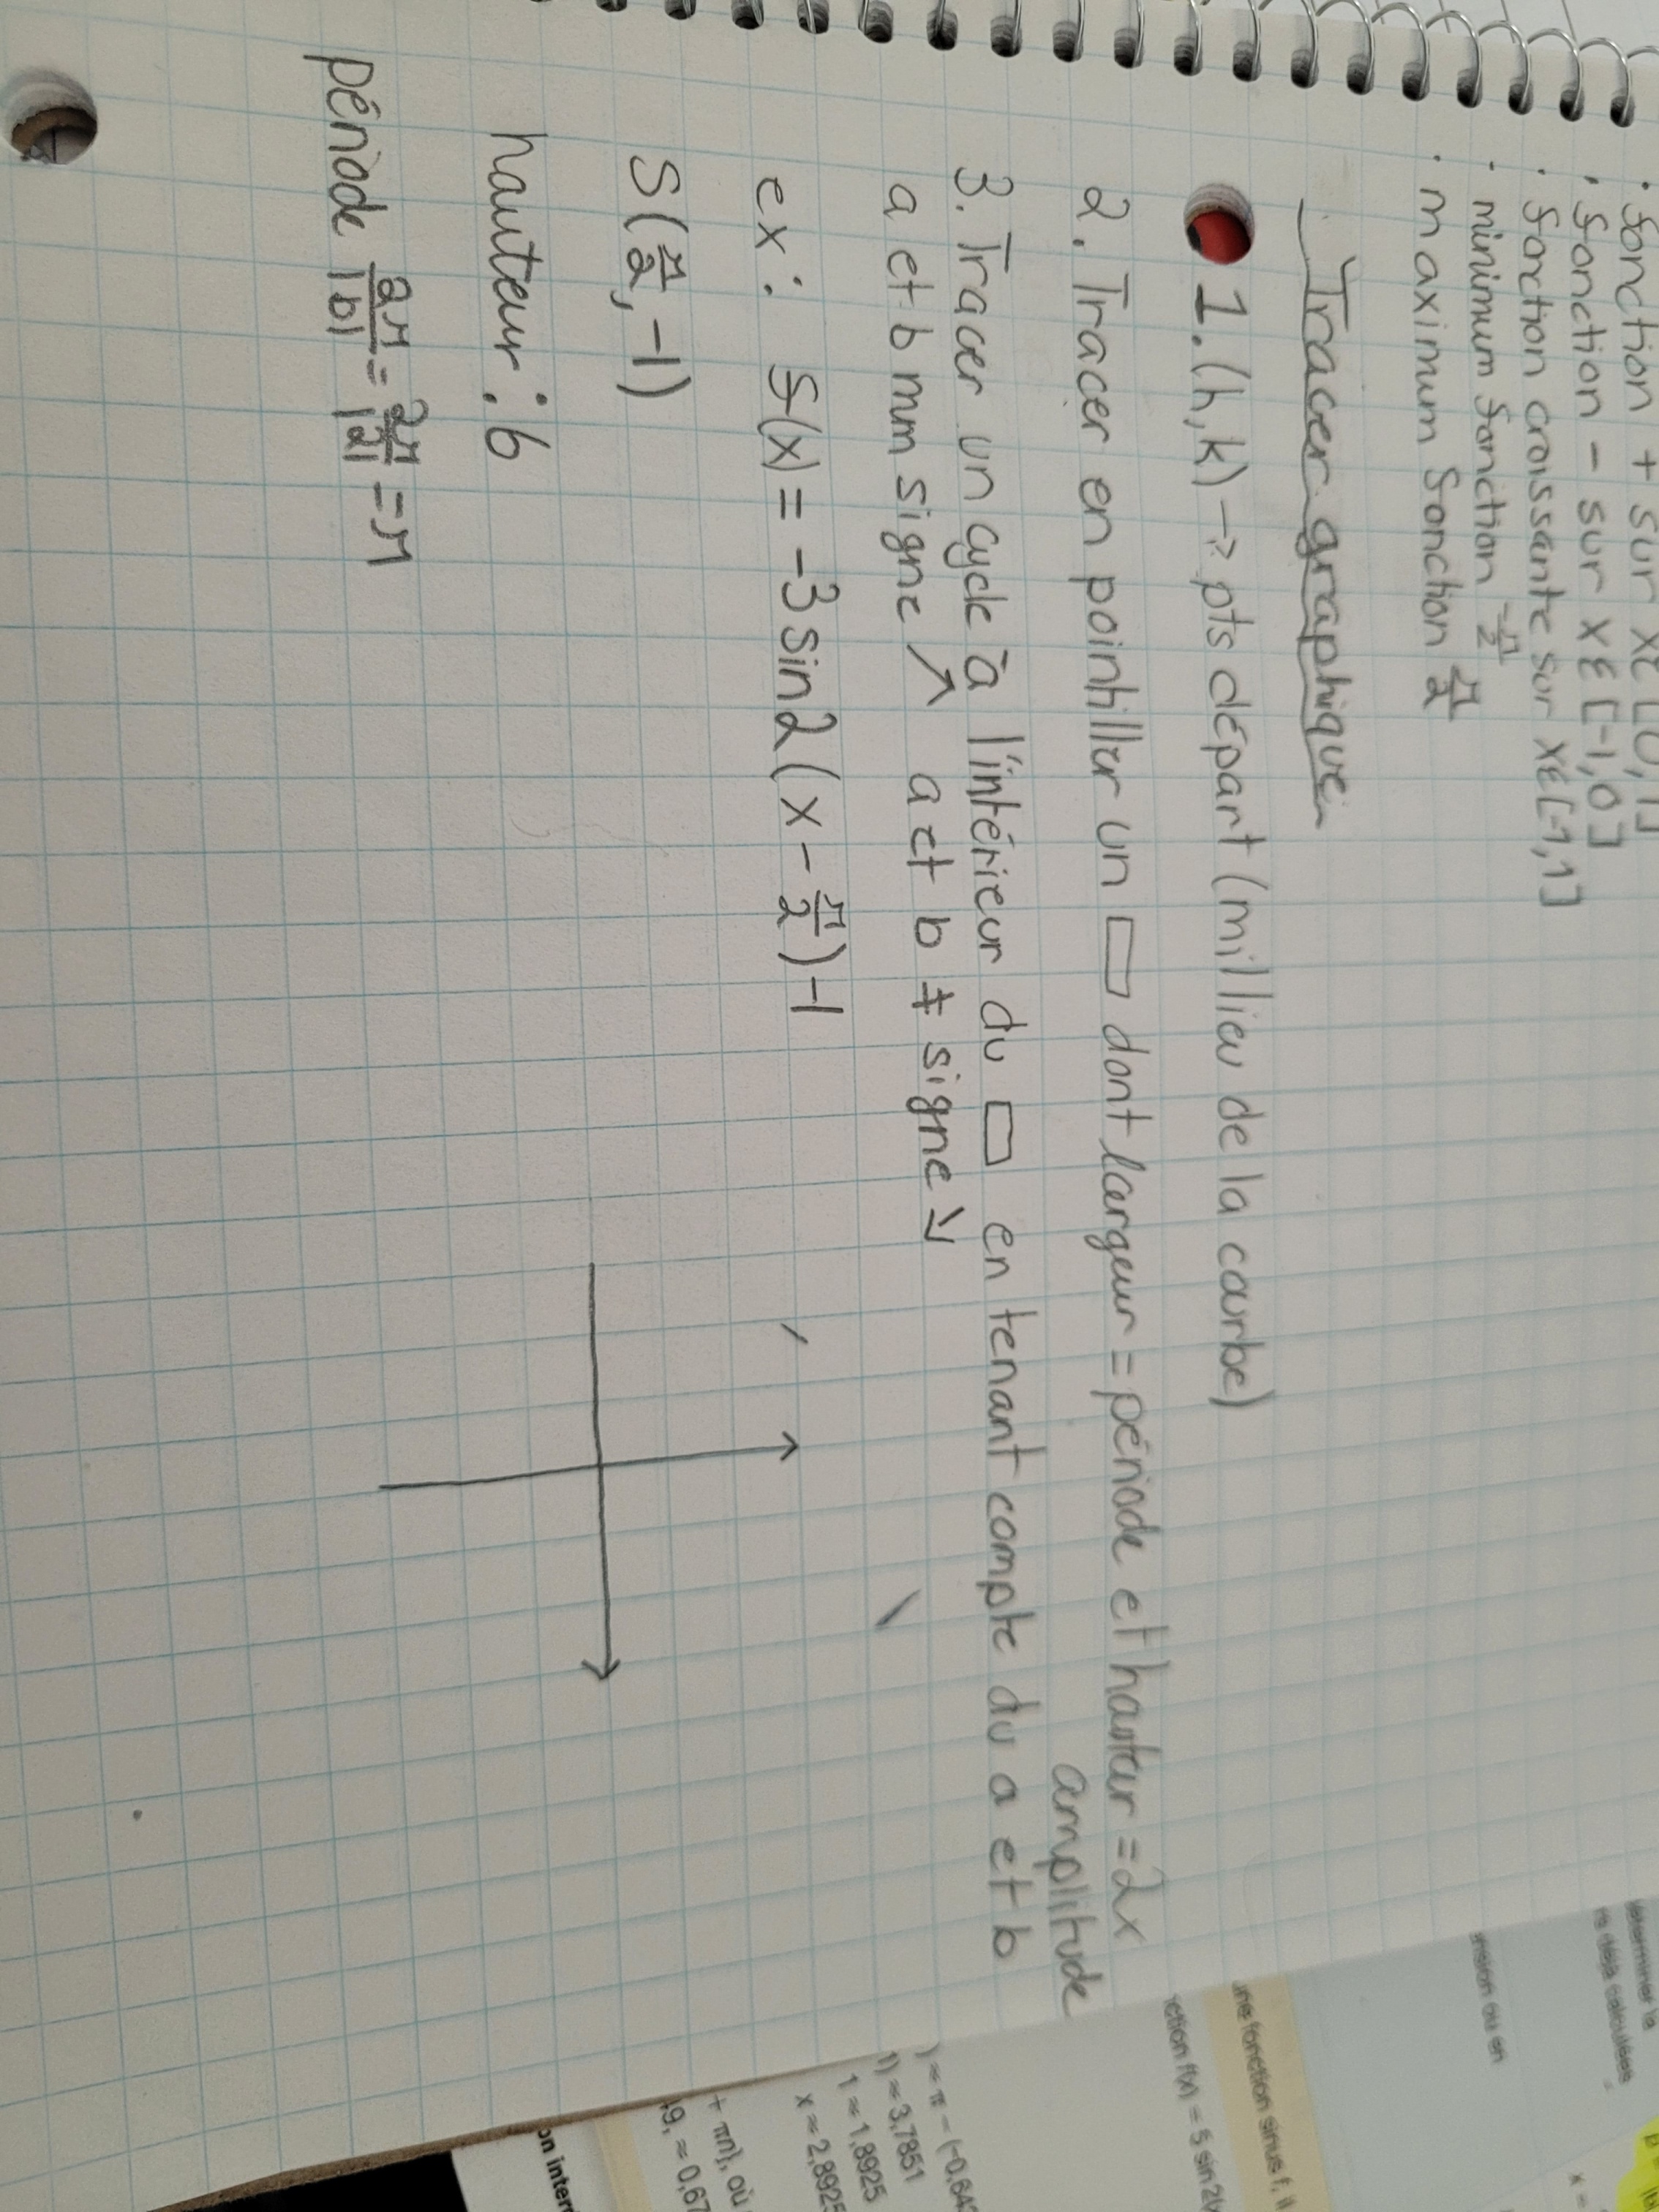 · fonction + sur xε[0,1]
· fonction - sur xε[-1,0]
· fonction croissante sur xε[-1,1]
· minimum fonction -π/2
· maximum fonction π/2
Tracer graphique
1. (h,k) → pts départ (millieu de la courbe)
2. Tracer en pointiller un ▭ dont largeur = période et hauteur = 2x
amplitude
3. Tracer un cycle à l'intérieur du ▭ en tenant compte du a et b
a et b mm signe ↗ a et b ≠ signe ↘
ex: f(x) = -3 sin2(x - π/2) -1
S(π/2, -1)
hauteur : 6
période 2π/|b| = 2π/|2| = π
déjà calculées
ension ou en
une fonction sinus f, il
f(x) = 5 sin 2(
) ≈ π - (-0,64
1) ≈ 3,7851
1 ≈ 1,8925
x ≈ 2,8925
+ πn}, où
≈ 0,67